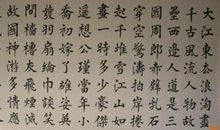 大江東去浪淘盡
千古風流人物故
壘西邊人道是三
國周郎赤壁亂石
穿空驚濤拍岸捲
起千堆雪江山如
畫一時多少豪傑
遙想公瑾當年小
喬初嫁了雄姿英
發羽扇綸巾談笑
間檣櫓灰飛煙滅
故國神遊多情應